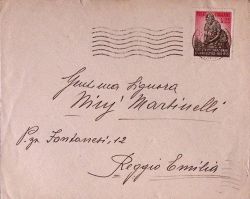 Gent.ma Signora
Miry Martinelli
P.za Fontanesi, 12
Reggio Emilia